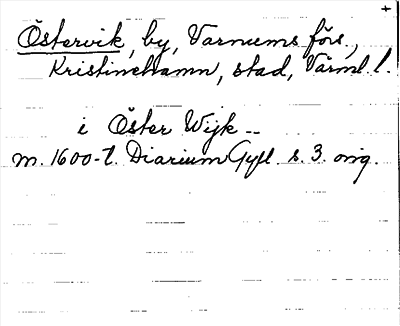 Östervik, by, Varnums förs.,
Kristinehamn, stad, Värml. l.
i Öster Wijk --
m. 1600-t. Diarium Gyll. s. 3. orig.